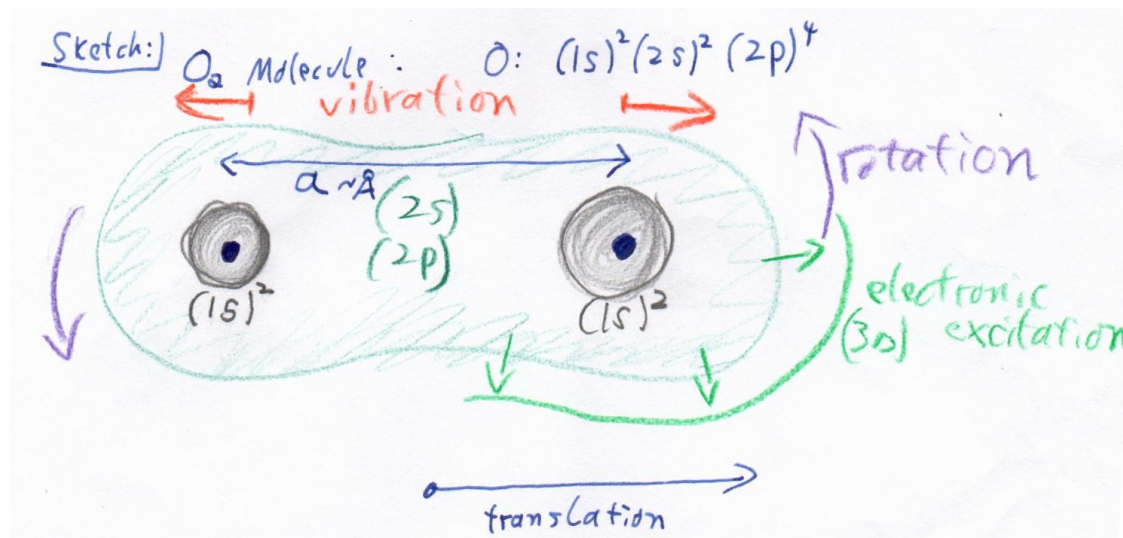 Sketch:
O₂ Molecule : O: (1s)² (2s)² (2p)⁴
vibration
rotation
a ~ Å
(2s)
(2p)
(1s)²
(1s)²
electronic
(3s) excitation
translation